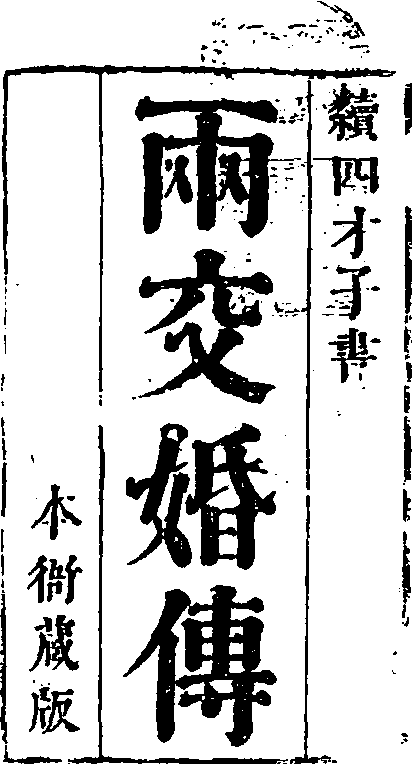 續四才子書
兩交婚傳
本衙藏版